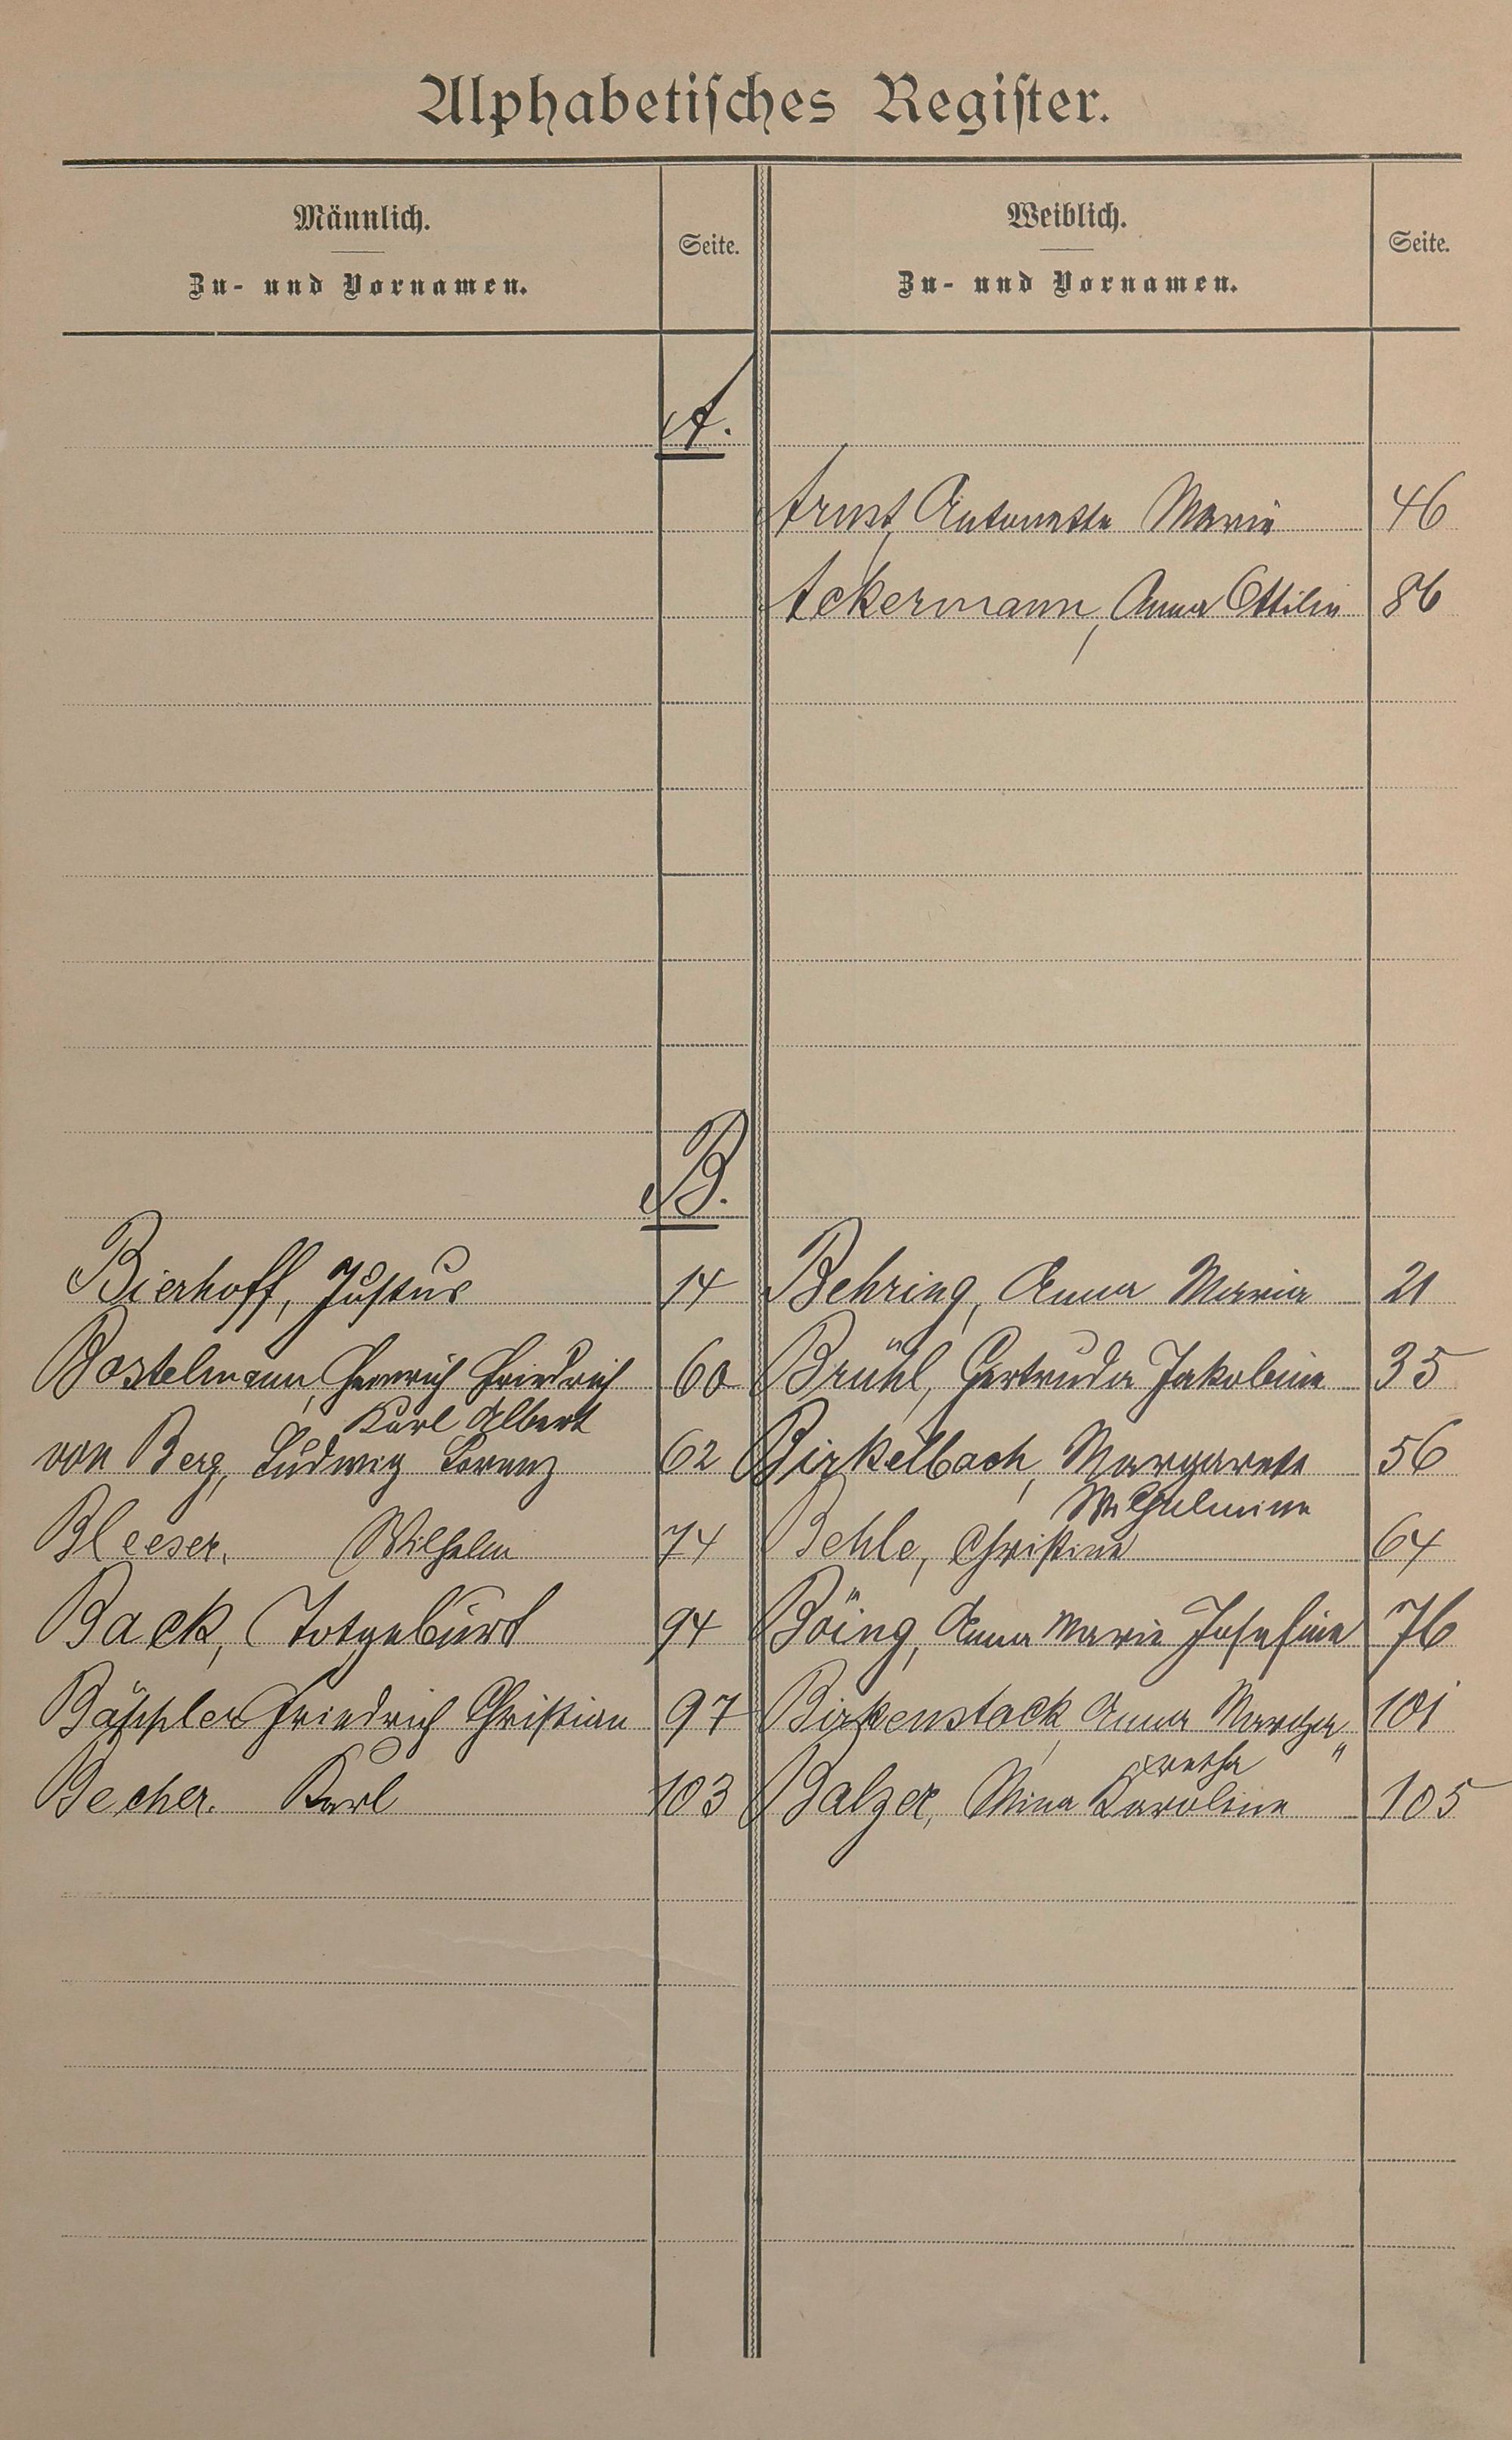 Alphabetisches Register.
Männlich.
Zu- und Vornamen.
Seite.
Weiblich.
Zu- und Vornamen.
Seite.
A.
Arnst, Antonette Marie 46
Ackermann, Anna Ottilie 86
B.
Bierhoff, Justus 14 Behring, Anna Maria 21
Bostelmann, Heinrich Friedrich 60 Brühl, Gertruda Jakobine 35
Karl Albert
von Berg, Ludwig Lorenz 62 Birkelbach, Margarete 56
Wilhelmine
Bleeser, Wilhelm 74 Behle, Christine 64
Back, Totgeburt 94 Böing, Anna Marie Josefine 76
Bäppler Friedrich Christian 97 Birkenstock, Anna Marga„ 101
„retha
Becher. Karl 103 Balzer, Mina Karoline 105